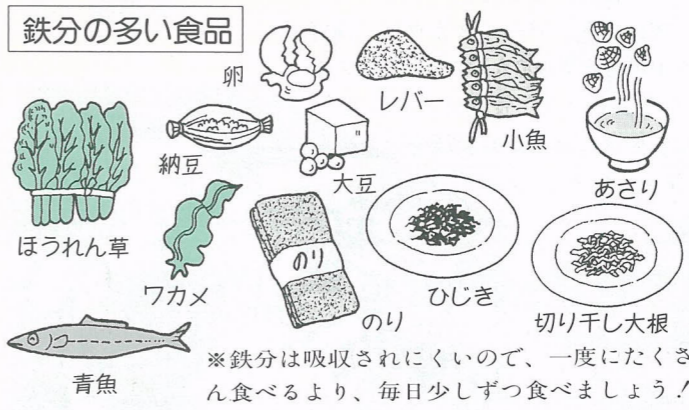 鉄分の多い食品
卵
レバー
小魚
納豆
大豆
あさり
ほうれん草
ワカメ
のり
のり
ひじき
切り干し大根
青魚
※鉄分は吸収されにくいので、一度にたくさ
ん食べるより、毎日少しずつ食べましょう!